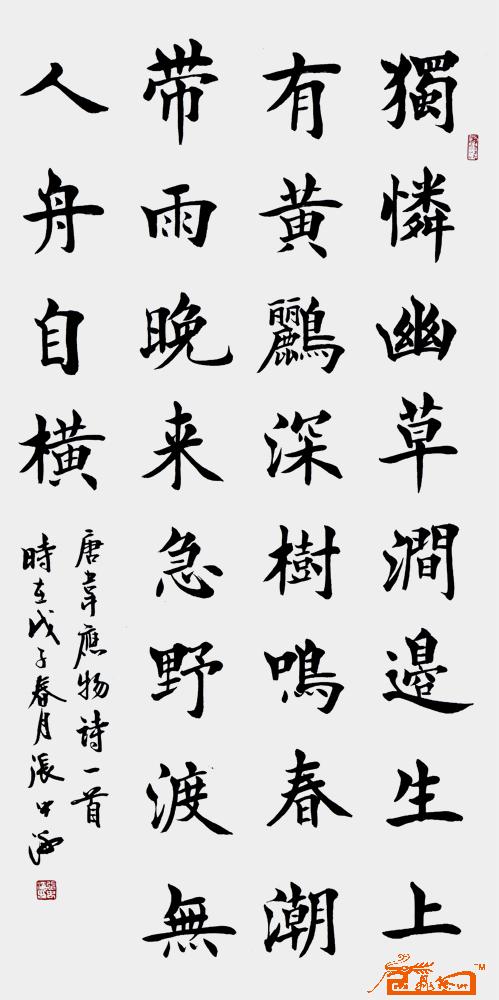 獨憐幽草澗邊生上
有黄鸝深樹鳴春潮
带雨晚来急野渡無
人舟自横
唐韋應物詩一首
時在戊子春月張中
TM